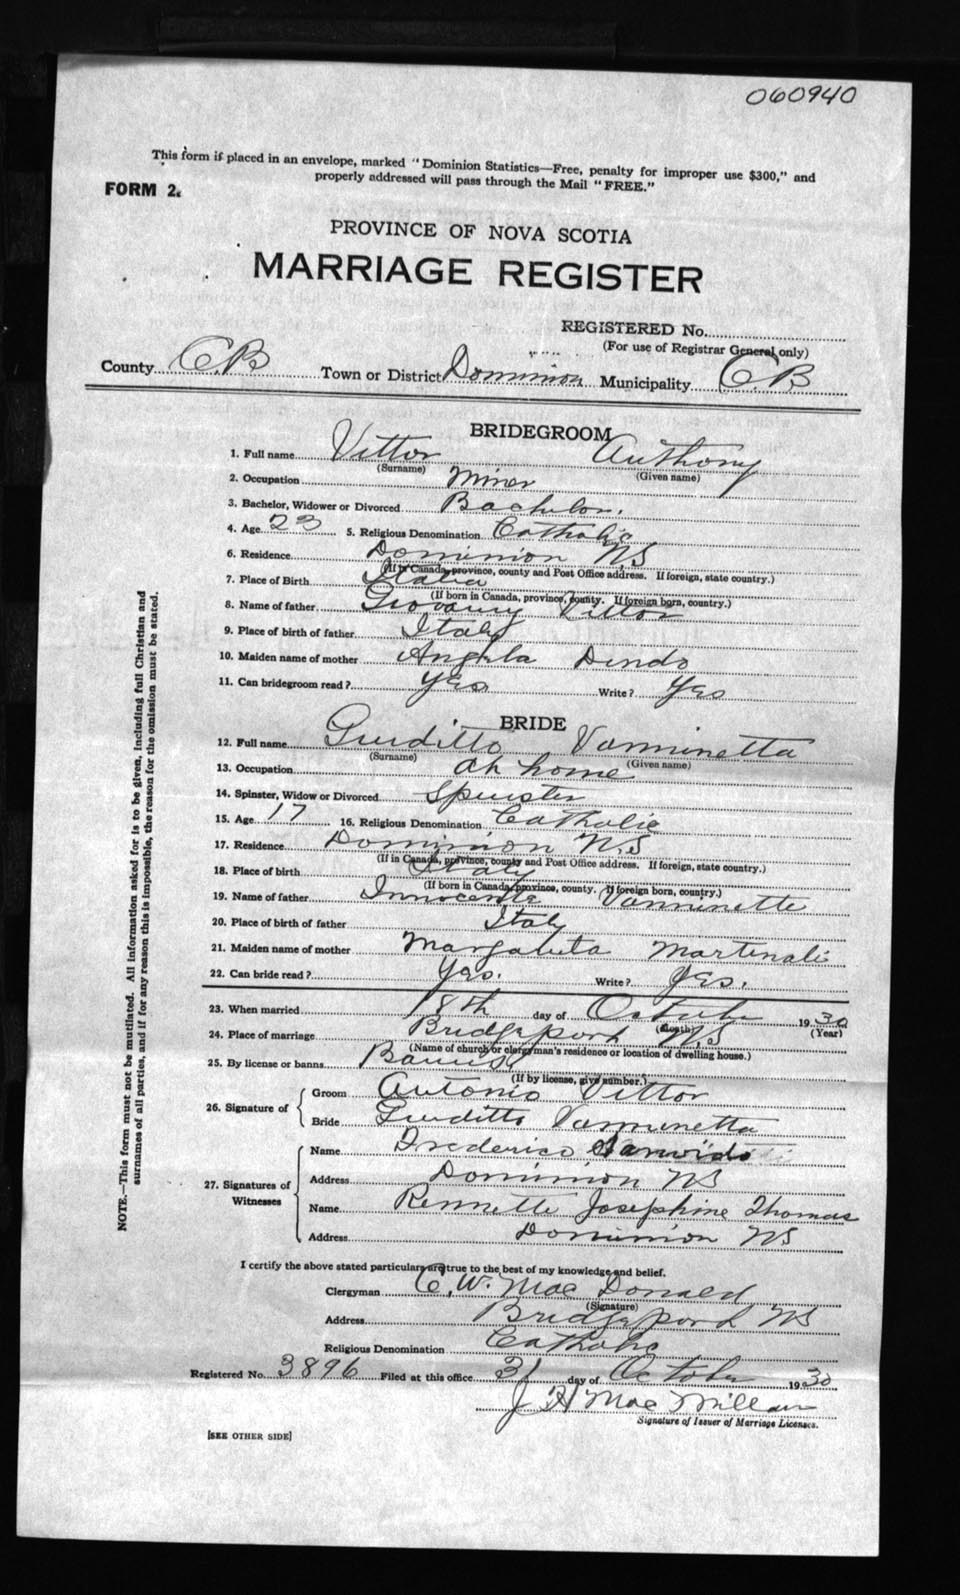 060940
This form if placed in an envelope, marked "Dominion Statistics—Free, penalty for improper use $300," and
properly addressed will pass through the Mail "FREE."
FORM 2.
PROVINCE OF NOVA SCOTIA
MARRIAGE REGISTER
REGISTERED No.
(For use of Registrar General only)
County C.B Town or District Dominion Municipality CB
BRIDEGROOM
1. Full name Vittor Anthony
(Surname) (Given name)
2. Occupation Miner
3. Bachelor, Widower or Divorced Bachelor.
4. Age 23 5. Religious Denomination Catholic
6. Residence Dominion NS
(If in Canada, province, county and Post Office address. If foreign, state country.)
7. Place of Birth Italia
(If born in Canada, province, county. If foreign born, country.)
8. Name of father Giovanny Vittor
9. Place of birth of father Italy
10. Maiden name of mother Angela Dindo
11. Can bridegroom read? Yes Write? Yes
BRIDE
12. Full name Guiditto Vanninetta
(Surname) (Given name)
13. Occupation At home
14. Spinster, Widow or Divorced Spinster
15. Age 17 16. Religious Denomination Catholic
17. Residence Dominion N.S
(If in Canada, province, county and Post Office address. If foreign, state country.)
18. Place of birth Italy
(If born in Canada, province, county. If foreign born, country.)
19. Name of father Innocente Vanninette
20. Place of birth of father Italy
21. Maiden name of mother Margaluta Martinali
22. Can bride read? Yes. Write? Yes.
23. When married 18th day of October 1930
(Month) (Year)
24. Place of marriage Bridgeport NS
(Name of church or clergyman's residence or location of dwelling house.)
25. By license or banns Banns
(If by license, give number.)
26. Signature of { Groom Antonio Vittor
Bride Guiditto Vanninetta
27. Signatures of Witnesses { Name Frederico
Address Dominion NS
Name Rennette Josephine Thomas
Address Dominion NS
I certify the above stated particulars are true to the best of my knowledge and belief.
Clergyman C. W. MacDonald
(Signature)
Address Bridgeport NS
Religious Denomination Catholic
Registered No. 3896 Filed at this office 31 day of October 1930
J H MacMillan
Signature of Issuer of Marriage Licenses.
[SEE OTHER SIDE]
NOTE.—This form must not be mutilated. All information asked for is to be given, including full Christian and
surnames of all parties, and if for any reason this is impossible, the reason for the omission must be stated.